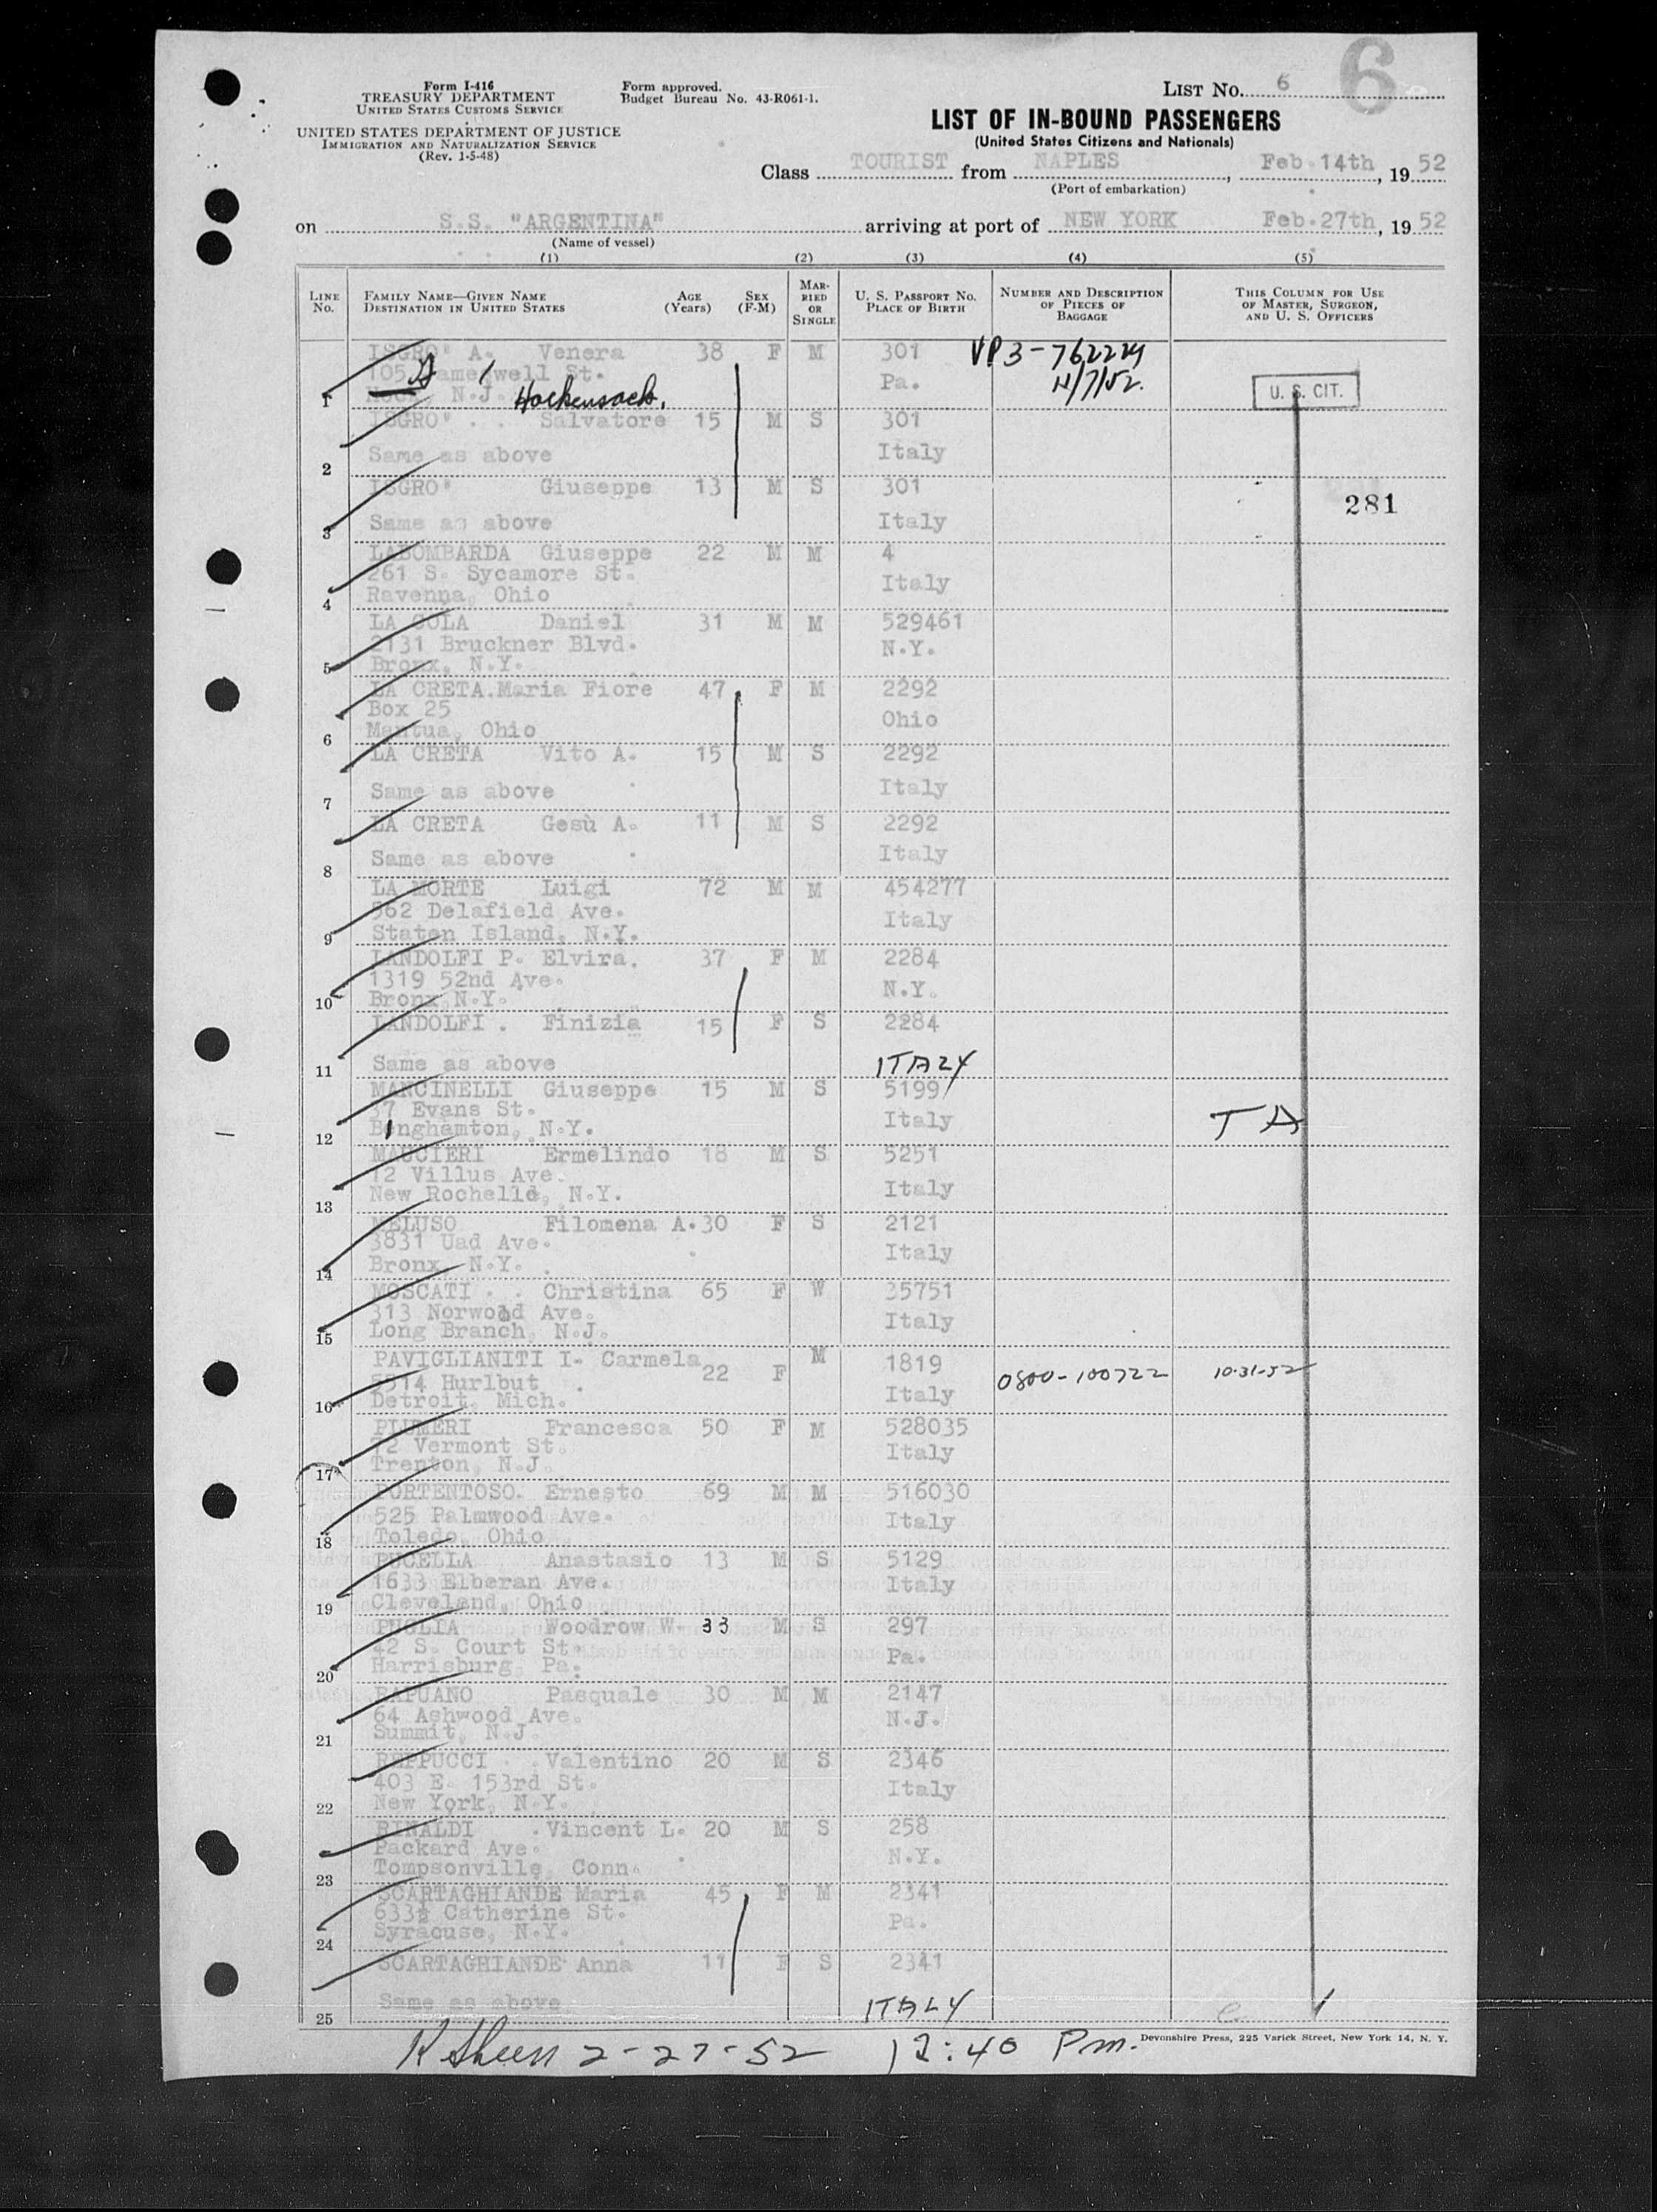 6
Form I-416
TREASURY DEPARTMENT
UNITED STATES CUSTOMS SERVICE
Form approved.
Budget Bureau No. 43-R061-1.
LIST NO. 6
UNITED STATES DEPARTMENT OF JUSTICE
IMMIGRATION AND NATURALIZATION SERVICE
(Rev. 1-5-48)
LIST OF IN-BOUND PASSENGERS
(United States Citizens and Nationals)
Class TOURIST from NAPLES, Feb.14th, 1952
(Port of embarkation)
on S.S. "ARGENTINA" arriving at port of NEW YORK Feb.27th, 1952
(Name of vessel)
(1) (2) (3) (4) (5)
LINE No. FAMILY NAME—GIVEN NAME DESTINATION IN UNITED STATES AGE (Years) SEX (F-M) MARRIED OR SINGLE U. S. PASSPORT NO. PLACE OF BIRTH NUMBER AND DESCRIPTION OF PIECES OF BAGGAGE THIS COLUMN FOR USE OF MASTER, SURGEON, AND U. S. OFFICERS
ISGRO' A. Venera 38 F M 301 VP3-762224
105 Gamewell St. Pa.
1 N.J. Hackensack. U. S. CIT.
ISGRO' Salvatore 15 M S 301
2 Same as above Italy
ISGRO' Giuseppe 13 M S 301
281
3 Same as above Italy
LABOMBARDA Giuseppe 22 M M 4
261 S. Sycamore St. Italy
4 Ravenna, Ohio
LA SOLA Daniel 31 M M 529461
2131 Bruckner Blvd. N.Y.
5 Bronx, N.Y.
LA CRETA Maria Fiore 47 F M 2292
Box 25 Ohio
6 Mantua, Ohio
LA CRETA Vito A. 15 M S 2292
7 Same as above Italy
LA CRETA Gesù A. 11 M S 2292
8 Same as above Italy
LA MORTE Luigi 72 M M 454277
562 Delafield Ave. Italy
9 Staten Island, N.Y.
LANDOLFI P. Elvira. 37 F M 2284
1319 52nd Ave. N.Y.
10 Bronx N.Y.
LANDOLFI . Finizia 15 F S 2284
11 Same as above ITALY
MANCINELLI Giuseppe 15 M S 5199
37 Evans St. Italy T A
12 Binghamton, N.Y.
MAUCIERI Ermelindo 18 M S 5251
12 Villus Ave. Italy
13 New Rochelle, N.Y.
MELUSO Filomena A. 30 F S 2121
3831 Uad Ave. Italy
14 Bronx N.Y.
MOSCATI Christina 65 F W 35751
313 Norwood Ave. Italy
15 Long Branch, N.J.
PAVIGLIANITI I. Carmela 22 F M 1819
5514 Hurlbut Italy 0800-100722 10-31-52
16 Detroit, Mich.
PIUMERI Francesca 50 F M 528035
72 Vermont St. Italy
17 Trenton, N.J.
PORTENTOSO. Ernesto 69 M M 516030
525 Palmwood Ave. Italy
18 Toledo, Ohio
PUCELLA Anastasio 13 M S 5129
1633 Elberan Ave. Italy
19 Cleveland, Ohio
PUGLIA Woodrow W. 33 M S 297
42 S. Court St. Pa.
20 Harrisburg, Pa.
RAPUANO Pasquale 30 M M 2147
64 Ashwood Ave. N.J.
21 Summit, N.J.
REPPUCCI Valentino 20 M S 2346
403 E. 153rd St. Italy
22 New York, N.Y.
RINALDI Vincent L. 20 M S 258
Packard Ave. N.Y.
23 Tompsonville, Conn.
SCARTAGHIANDE Maria 45 F M 2341
633½ Catherine St. Pa.
24 Syracuse, N.Y.
SCARTAGHIANDE Anna 11 F S 2341
25 Same as above ITALY
Devonshire Press, 225 Varick Street, New York 14, N. Y.
2-27-52 12:40 Pm.